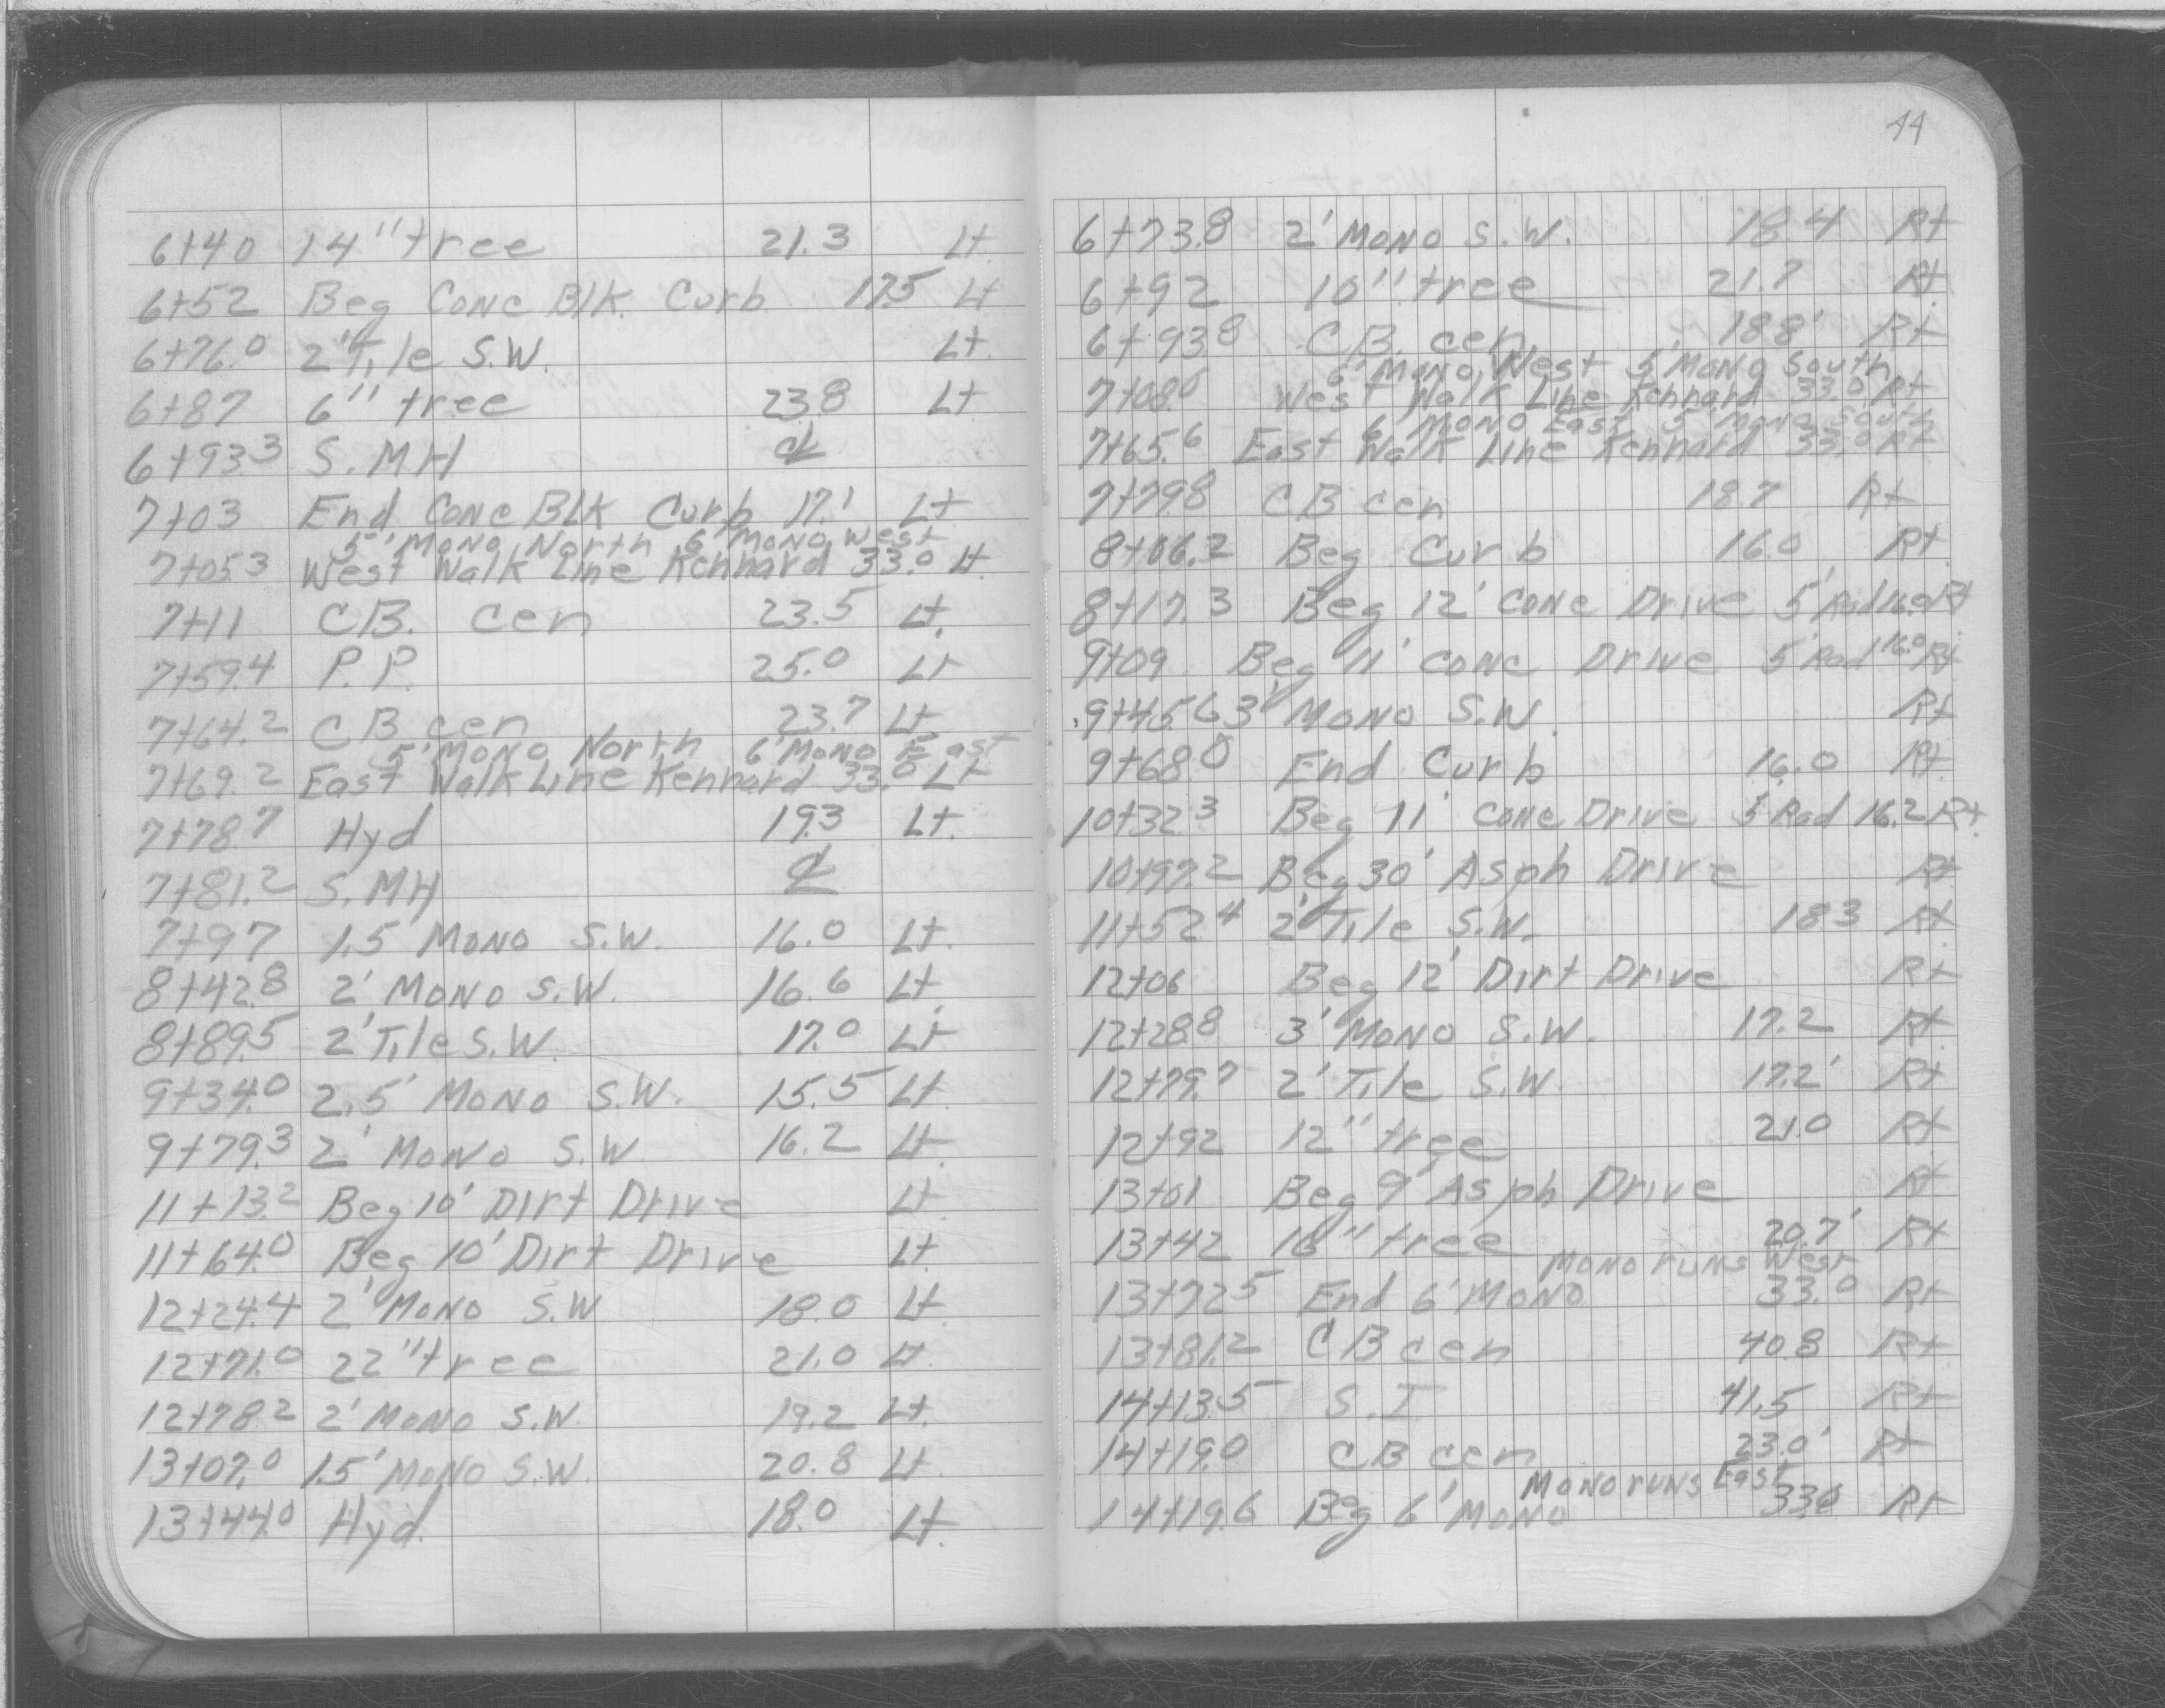 6+40 14" tree 21.3 Lt.
6+52 Beg Conc Blk. Curb 17.5 Lt
6+76.0 2' Tile S.W. Lt.
6+87 6" tree 23.8 Lt
6+93.3 S.MH ℄
7+03 End Conc Blk Curb 17.1 Lt
5' Mono North 6' Mono West
7+05.3 West Walk Line Kennard 33.0 Lt.
7+11 C.B. cen 23.5 Lt.
7+59.4 P.P. 25.0 Lt
7+64.2 CB cen 23.7 Lt
5' Mono North 6' Mono East
7+69.2 East Walk Line Kennard 33.0 Lt
7+78.7 Hyd 19.3 Lt.
7+81.2 S.MH ℄
7+97 1.5' Mono S.W. 16.0 Lt.
8+42.8 2' Mono S.W. 16.6 Lt.
8+89.5 2' Tile S.W. 17.0 Lt
9+34.0 2.5' Mono S.W. 15.5 Lt
9+79.3 2' Mono S.W. 16.2 Lt.
11+13.2 Beg 10' Dirt Drive Lt
11+64.0 Beg 10' Dirt Drive Lt.
12+24.4 2' Mono S.W 18.0 Lt
12+71.0 22" tree 21.0 Lt.
12+78.2 2' Mono S.W. 19.2 Lt.
13+07.0 1.5' Mono S.W. 20.8 Lt.
13+44.0 Hyd. 18.0 Lt.
44
6+73.8 2' Mono S.W. 18.4 Rt
6+92 10" tree 21.7 Rt.
6+93.8 C.B. cen. 18.8' Rt
6' Mono West 5' Mono South
7+08.0 West Walk Line Kennard 33.0 Rt
6' Mono East 5' Mono South
7+65.6 East Walk Line Kennard 33.0 Rt
7+79.8 CB cen 18.7 Rt
8+06.2 Beg Curb 16.0 Rt
8+17.3 Beg 12' Conc Drive 5' Rad 16.0 Rt
9+09 Beg 11' Conc Drive 5' Rad 16.0 Rt
9+45.6 3' Mono S.W. Rt
9+68.0 End Curb 16.0 Rt.
10+32.3 Beg 11' Conc Drive 5' Rad 16.2 Rt.
10+97.2 Beg 30' Asph Drive Rt
11+52.4 2' Tile S.W. 18.3 Rt
12+06 Beg 12' Dirt Drive Rt
12+28.8 3' Mono S.W. 17.2 Rt
12+79.7 2' Tile S.W. 17.2' Rt
12+92 12" tree 21.0 Rt
13+01 Beg 9' Asph Drive Rt
13+42 tree 20.7' Rt
Mono runs West
13+72.5 End 6' Mono 33.0 Rt
13+81.2 CB cen 40.8 Rt
14+13.5 S.I. 41.5 Rt
14+19.0 CB cen 23.0' Rt
Mono runs East
14+19.6 Beg 6' Mono 33.0 Rt